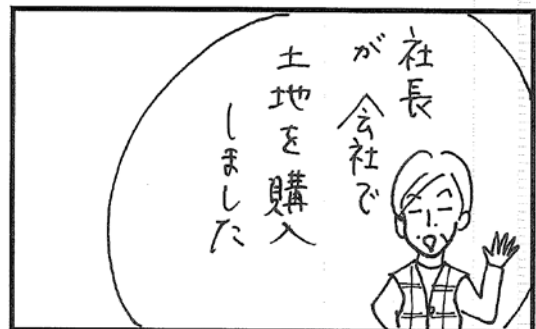 社長
が会社で
土地を購入
しました